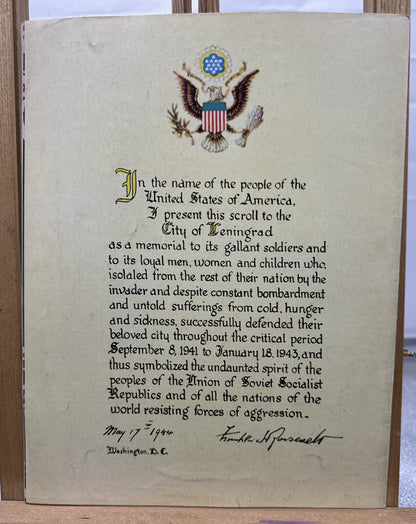 In the name of the people of the
United States of America,
I present this scroll to the
City of Leningrad
as a memorial to its gallant soldiers and
to its loyal men, women and children who,
isolated from the rest of their nation by the
invader and despite constant bombardment
and untold sufferings from cold, hunger
and sickness, successfully defended their
beloved city throughout the critical period
September 8, 1941 to January 18, 1943, and
thus symbolized the undaunted spirit of the
peoples of the Union of Soviet Socialist
Republics and of all the nations of the
world resisting forces of aggression.
May 17th 1944 Franklin D Roosevelt
Washington, D.C.